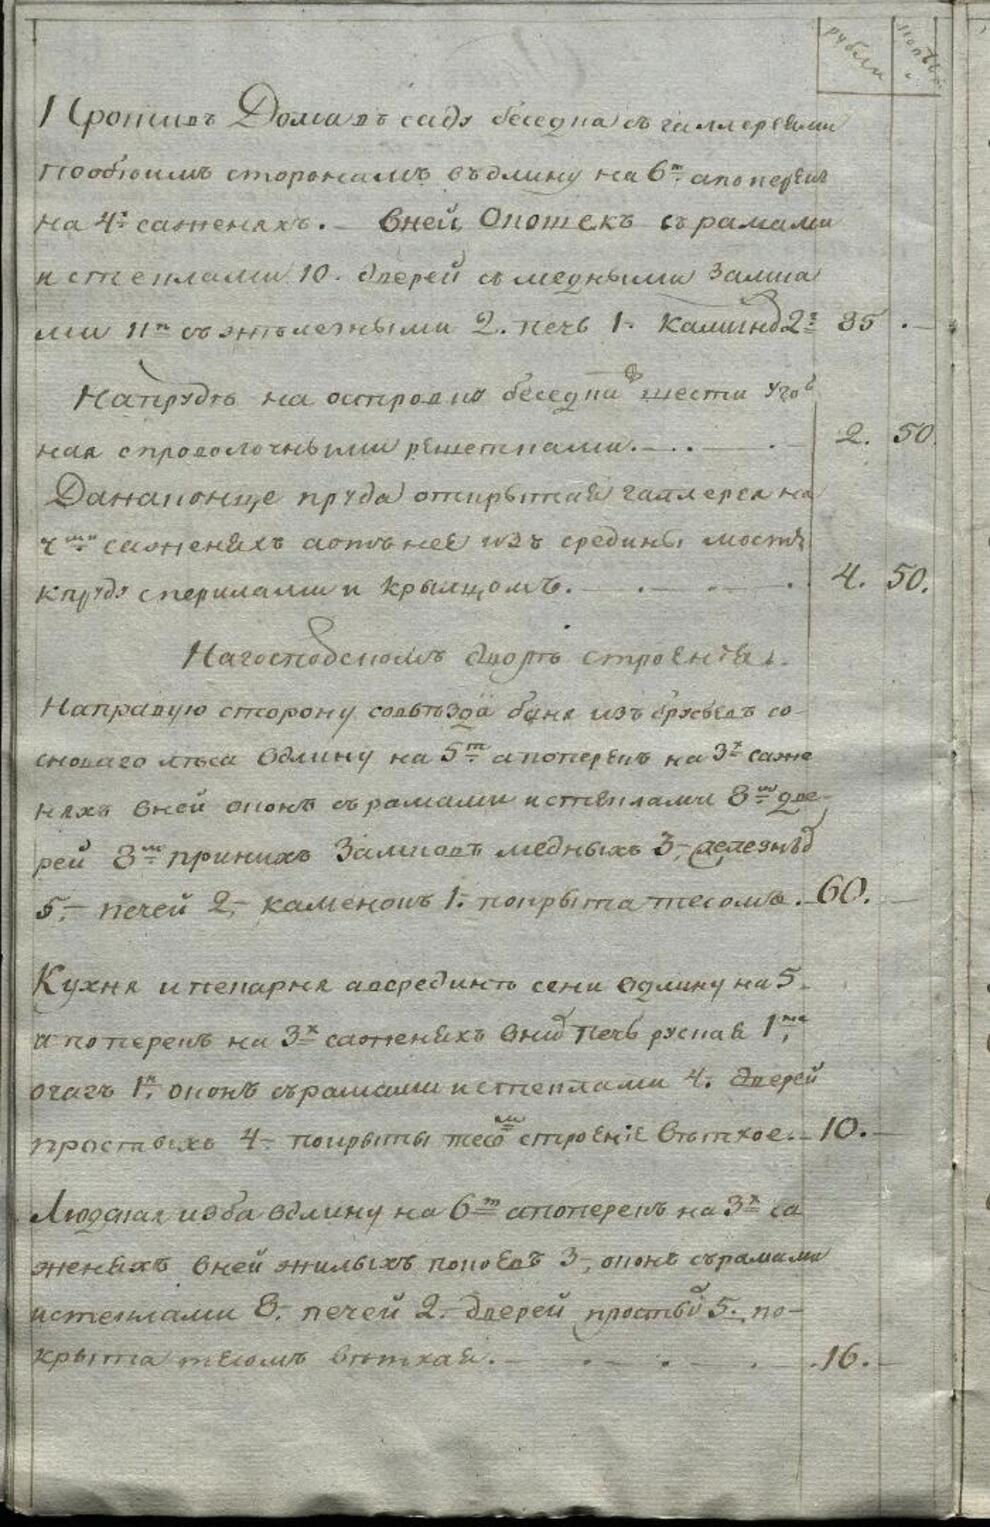 рубли копѣй
Противъ Дома въ саду беседка съ галлереями
пообоимъ сторонамъ въдлину на 6ти апоперекъ
на 4х саженяхъ. — Вней Окошекъ съ рамами
и стеклами 10. дверей съ медными Замка
ми 11ть съ желѣзными 2. печь 1. Каминов 2. 35 . —
Напрудѣ на островку беседки шести угол
ная спроволочными решетками. — 2. 50.
Данаконце пруда открытая галлерея на
саженяхъ аотъ нея изъ средины мостъ
кпруду сперилами и крыльцомъ. — 4. 50.
Нагосподскомъ дворѣ строения.
Направую сторону совъѣзда баня изъ брусьевъ со-
сноваго лѣса вдлину на 5ти апоперекъ на 3х саже
няхъ вней оконъ съ рамами истеклами 8ми две-
рей 8ми приних Замковъ медныхъ 3, железных
5. — печей 2, каменокъ 1. покрыта тесомъ. — 60. —
Кухня ипекарня авсрединѣ сени вдлину на 5.
апоперекъ на 3х саженяхъ вних печь руская 1на,
очагъ 1н. оконъ съ рамами истеклами 4. дверей
простыхъ 4 — покрыты тесом строение ветхое. — 10. —
Людская изба вдлину на 6ти апоперекъ на 3х са
женяхъ вней жилыхъ покоевъ 3, оконъ съ рамами
истеклами 8. печей 2. дверей простых 5. по-
крыта тесомъ ветхая. — 16. —